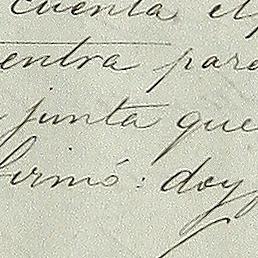 cuenta el
entra para
junta que
firmó: doy